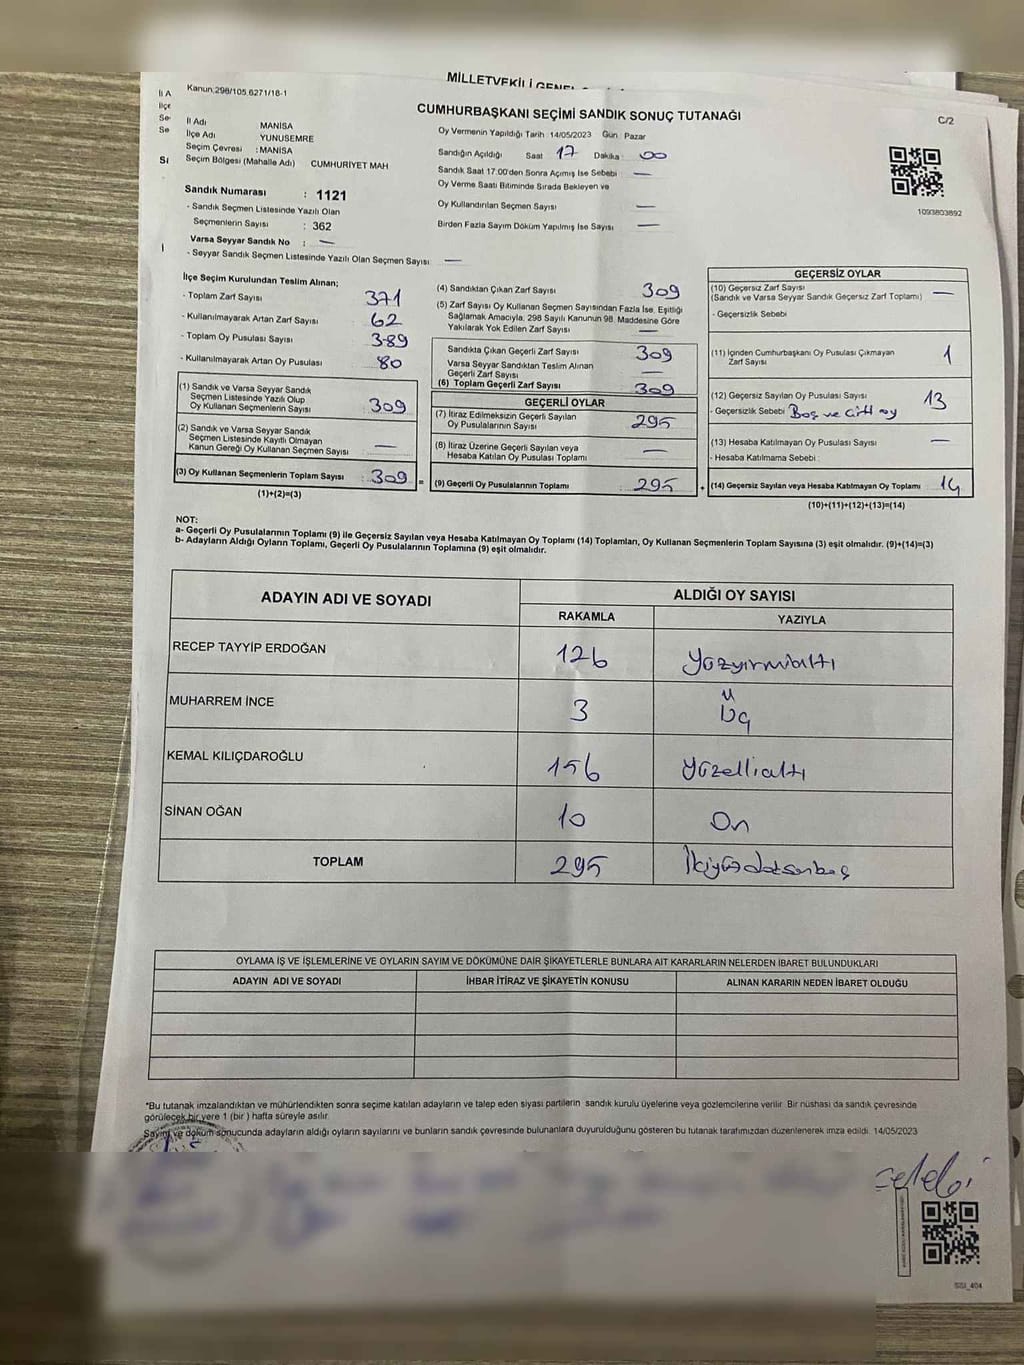 MİLLETVEKİLİ GENEL
Kanun:298/105,6271/18-1
CUMHURBAŞKANI SEÇİMİ SANDIK SONUÇ TUTANAĞI
C/2
İl A
İlçe
Se
Se
Sİ
İl Adı MANİSA
İlçe Adı YUNUSEMRE
Seçim Çevresi : MANİSA
Seçim Bölgesi (Mahalle Adı) CUMHURİYET MAH
Oy Vermenin Yapıldığı Tarih :14/05/2023 Gün: Pazar
Sandığın Açıldığı Saat 17 Dakika : 00
Sandık Saat 17:00'den Sonra Açımış İse Sebebi : —
Oy Verme Saati Bitiminde Sırada Bekleyen ve
Oy Kullandırılan Seçmen Sayısı —
Birden Fazla Sayım Döküm Yapılmış İse Sayısı —
1093803892
Sandık Numarası : 1121
- Sandık Seçmen Listesinde Yazılı Olan
Seçmenlerin Sayısı : 362
Varsa Seyyar Sandık No : —
- Seyyar Sandık Seçmen Listesinde Yazılı Olan Seçmen Sayısı: —
İlçe Seçim Kurulundan Teslim Alınan;
- Toplam Zarf Sayısı 371
- Kullanılmayarak Artan Zarf Sayısı 62
- Toplam Oy Pusulası Sayısı 389
- Kullanılmayarak Artan Oy Pusulası 80
(1) Sandık ve Varsa Seyyar Sandık
Seçmen Listesinde Yazılı Olup
Oy Kullanan Seçmenlerin Sayısı 309
(2) Sandık ve Varsa Seyyar Sandık
Seçmen Listesinde Kayıtlı Olmayan
Kanun Gereği Oy Kullanan Seçmen Sayısı —
(3) Oy Kullanan Seçmenlerin Toplam Sayısı : 309
(1)+(2)=(3)
(4) Sandıktan Çıkan Zarf Sayısı 309
(5) Zarf Sayısı Oy Kullanan Seçmen Sayısından Fazla İse, Eşitliği
Sağlamak Amacıyla, 298 Sayılı Kanunun 98. Maddesine Göre
Yakılarak Yok Edilen Zarf Sayısı —
Sandıkta Çıkan Geçerli Zarf Sayısı 309
Varsa Seyyar Sandıktan Teslim Alınan
Geçerli Zarf Sayısı —
(6) Toplam Geçerli Zarf Sayısı 309
GEÇERLİ OYLAR
(7) İtiraz Edilmeksizin Geçerli Sayılan
Oy Pusulalarının Sayısı 295
(8) İtiraz Üzerine Geçerli Sayılan veya
Hesaba Katılan Oy Pusulası Toplamı —
= (9) Geçerli Oy Pusulalarının Toplamı 295 +
GEÇERSİZ OYLAR
(10) Geçersiz Zarf Sayısı —
(Sandık ve Varsa Seyyar Sandık Geçersiz Zarf Toplamı)
- Geçersizlik Sebebi
(11) İçinden Cumhurbaşkanı Oy Pusulası Çıkmayan
Zarf Sayısı 1
(12) Geçersiz Sayılan Oy Pusulası Sayısı 13
- Geçersizlik Sebebi Boş ve Çift oy
(13) Hesaba Katılmayan Oy Pusulası Sayısı —
- Hesaba Katılmama Sebebi :
(14) Geçersiz Sayılan veya Hesaba Katılmayan Oy Toplamı 14
(10)+(11)+(12)+(13)=(14)
NOT:
a- Geçerli Oy Pusulalarının Toplamı (9) ile Geçersiz Sayılan veya Hesaba Katılmayan Oy Toplamı (14) Toplamları, Oy Kullanan Seçmenlerin Toplam Sayısına (3) eşit olmalıdır. (9)+(14)=(3)
b- Adayların Aldığı Oyların Toplamı, Geçerli Oy Pusulalarının Toplamına (9) eşit olmalıdır.
ADAYIN ADI VE SOYADI ALDIĞI OY SAYISI
RAKAMLA YAZIYLA
RECEP TAYYİP ERDOĞAN 126 Yüzyirmialtı
MUHARREM İNCE 3 Üç
KEMAL KILIÇDAROĞLU 156 Yüzellialtı
SİNAN OĞAN 10 On
TOPLAM 295 İkiyüzdoksanbeş
OYLAMA İŞ VE İŞLEMLERİNE VE OYLARIN SAYIM VE DÖKÜMÜNE DAİR ŞİKAYETLERLE BUNLARA AİT KARARLARIN NELERDEN İBARET BULUNDUKLARI
ADAYIN ADI VE SOYADI İHBAR İTİRAZ VE ŞİKAYETİN KONUSU ALINAN KARARIN NEDEN İBARET OLDUĞU
*Bu tutanak imzalandıktan ve mühürlendikten sonra seçime katılan adayların ve talep eden siyasi partilerin sandık kurulu üyelerine veya gözlemcilerine verilir. Bir nüshası da sandık çevresinde
görülecek bir yere 1 (bir ) hafta süreyle asılır.
Sayım ve döküm sonucunda adayların aldığı oyların sayılarını ve bunların sandık çevresinde bulunanlara duyurulduğunu gösteren bu tutanak tarafımızdan düzenlenerek imza edildi. 14/05/2023